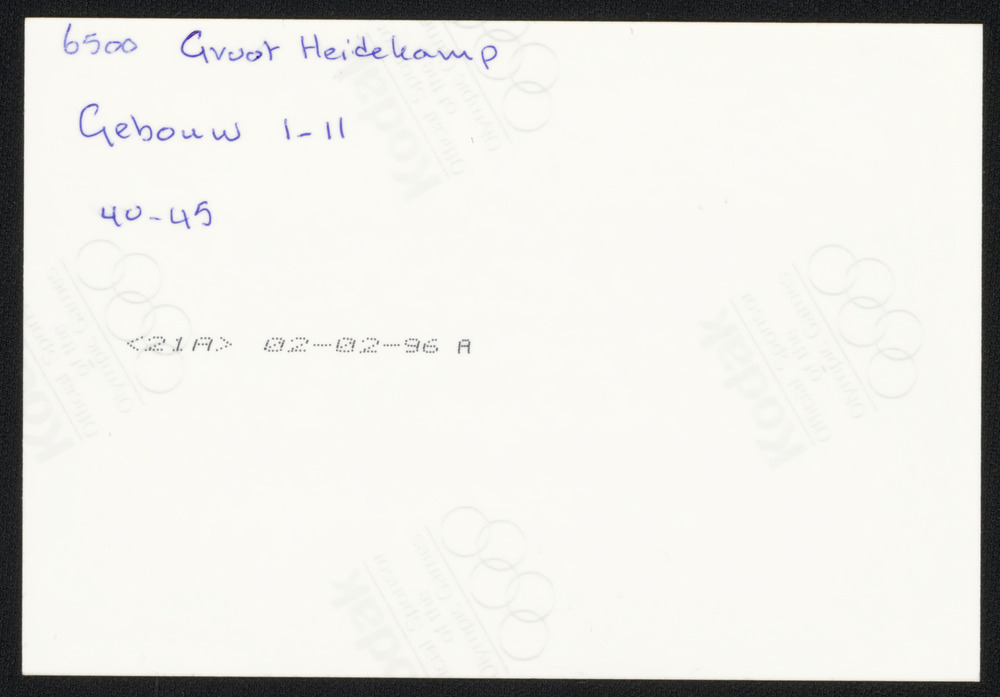 6500 Groot Heidekamp
Gebouw 1-11
40-45
<21A> 02-02-96 A
Kodak
Official Sponsor
of the
Olympic Games
Kodak
Official Sponsor
of the
Olympic Games
Kodak
Official Sponsor
of the
Olympic Games
Kodak
Official Sponsor
of the
Olympic Games